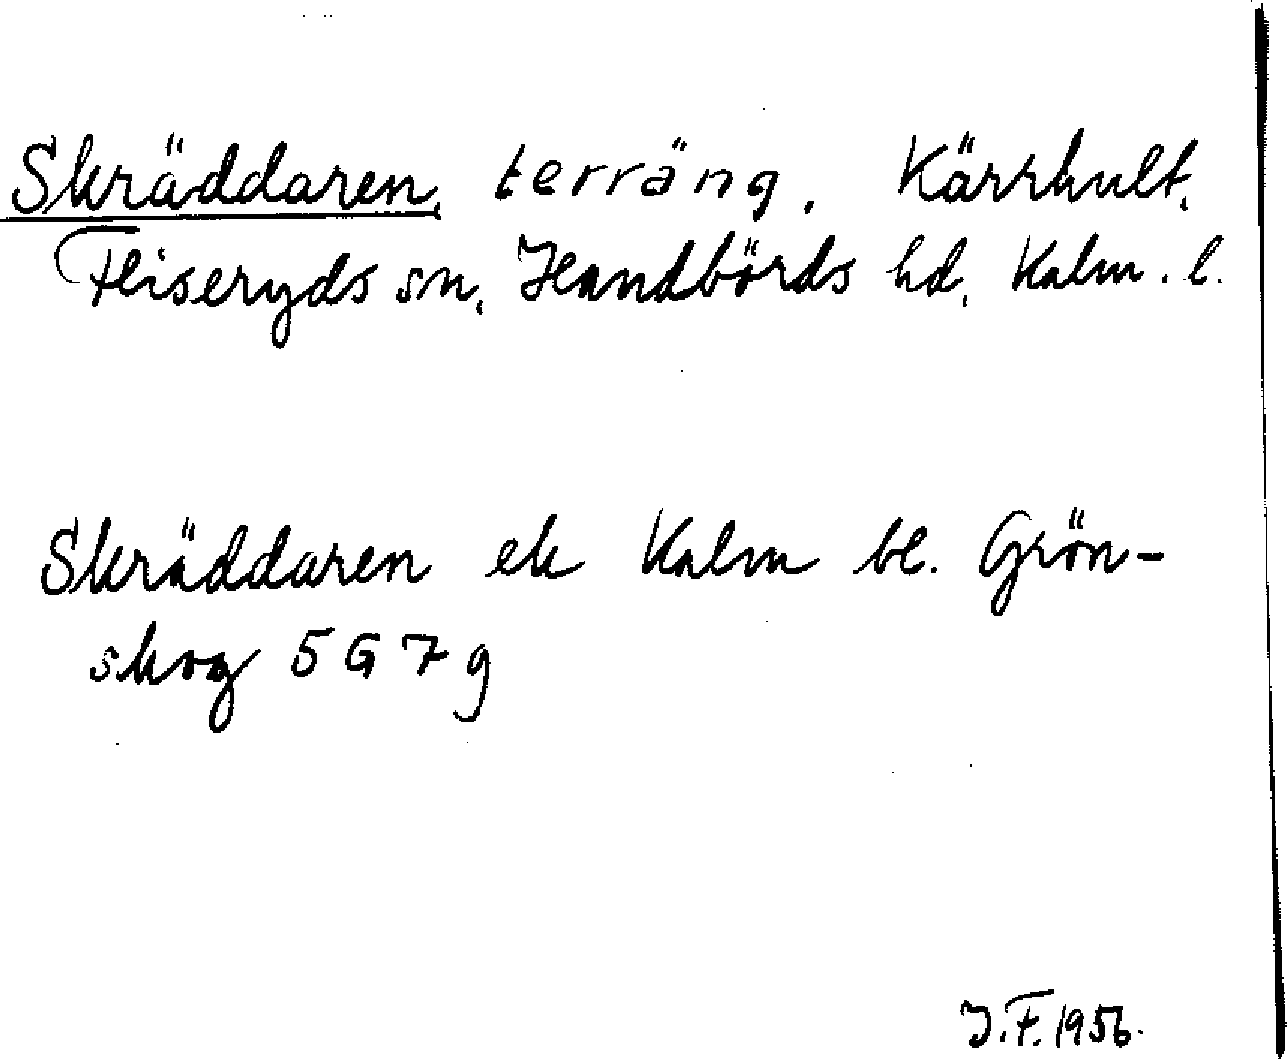 Skräddaren, terräng, Kärrhult,
Fliseryds sn, Handbörds hd, Kalm. l.
Skräddaren ek Kalm bl. Grön-
skog 5G7g
J.F. 1956.